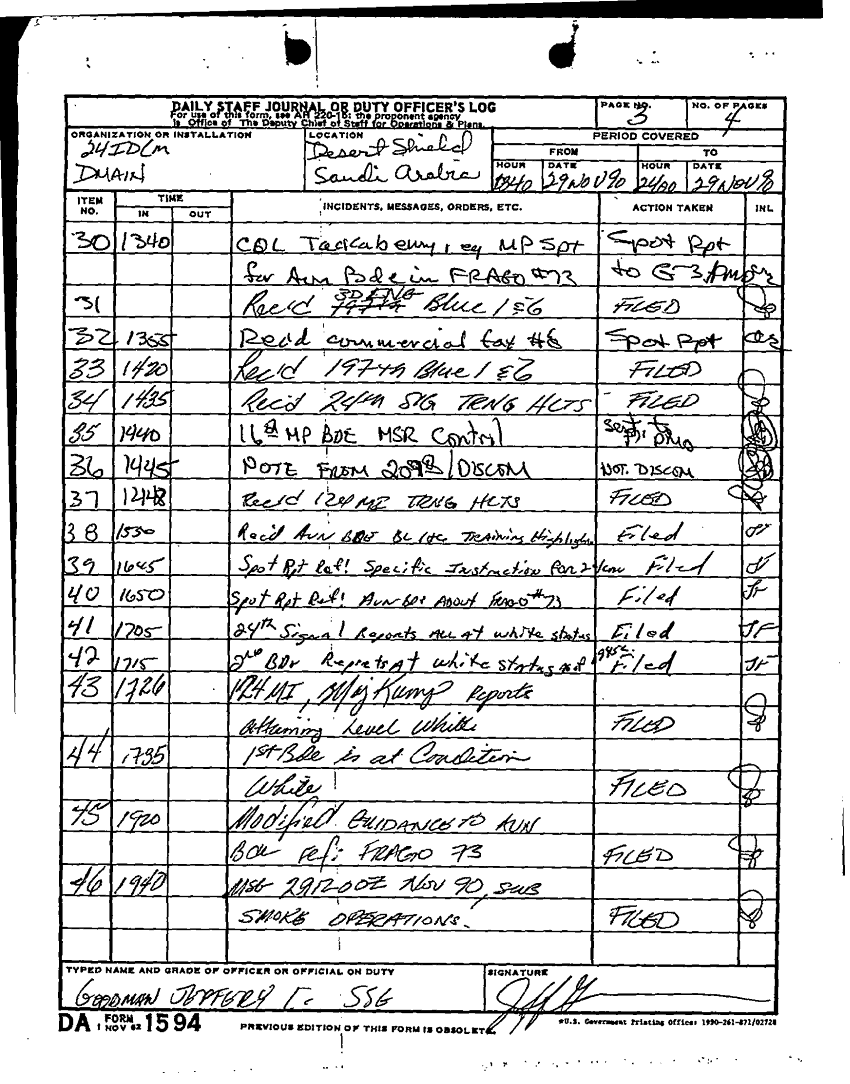 DAILY STAFF JOURNAL OR DUTY OFFICER'S LOG
For use of this form, see AR 220-15; the proponent agency
is Office of The Deputy Chief of Staff for Operations & Plans.
PAGE NO.
3
NO. OF PAGES
4
ORGANIZATION OR INSTALLATION
24IDLM
DMAIN
LOCATION
Desert Shield
Saudi Arabia
PERIOD COVERED
FROM TO
HOUR DATE HOUR DATE
29NOV90 2400 29NOV90
ITEM NO. TIME IN OUT INCIDENTS, MESSAGES, ORDERS, ETC. ACTION TAKEN INL
30 1340 COL Tackaberry, MP Spt Spot Rpt
for Avn Bde in FRAGO #73 to G-3,
31 Rec'd 3D ENG Blue 1 & 6 FILED
32 1355 Rec'd commercial fax #6 Spot Rpt
33 1420 Rec'd 197th Blue 1 & 6 FILED
34 1435 Rec'd 24th SIG TRNG HLTS FILED
35 1440 16th MP BDE MSR Control sent to PMO
36 1445 NOTE FROM DISCOM NOT. DISCOM
37 1448 Rec'd 124 MI TRNG HLTS FILED
38 1530 Rec'd AVN BDE Training Highlights Filed
39 1645 Spot Rpt Ref! Specific Instruction for Filed
40 1650 Spot Rpt Ref! AVN BDE About FRAGO #73 Filed JF
41 1705 24th Signal Reports All At white status Filed JF
42 1715 2nd BDE Reports At white status as of Filed JF
43 1726 124 MI, Maj Kump Reports
attaining Level White FILED
44 1735 1st Bde is at Condition
White FILED
45 1920 Modified GUIDANCE TO AVN
BDE ref: FRAGO 73 FILED
46 1940 MSG 291200Z Nov 90, SUB
SMOKE OPERATIONS. FILED
TYPED NAME AND GRADE OF OFFICER OR OFFICIAL ON DUTY
GOODMAN JEFFERY T. SSG
SIGNATURE
DA FORM 1 NOV 62 1594
PREVIOUS EDITION OF THIS FORM IS OBSOLETE.
*U.S. Government Printing Office: 1990-261-871/02728